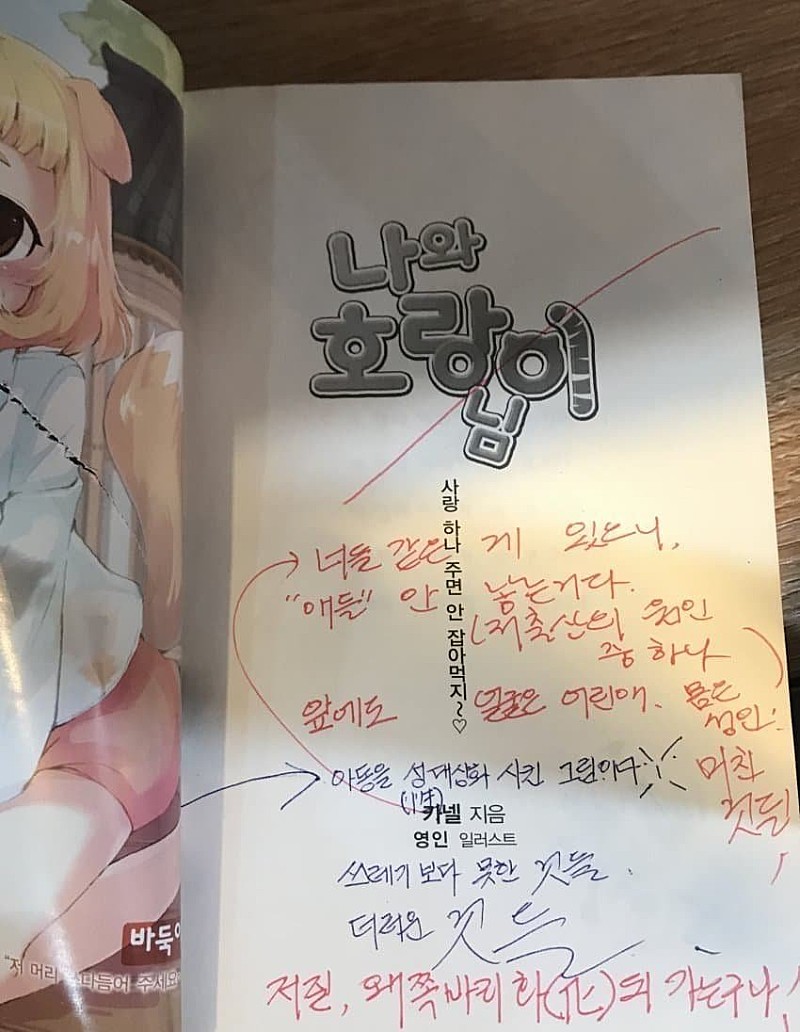 나와
호랑이
님
사랑 하나 주면 안 잡아먹지~♡
너들 같은 게 있으니,
"애들" 안 낳는거다.
(저출산의 원인
중 하나
앞에도 얼굴은 어린애. 몸은
성인!
미친
것들!
아동을 성대상화 시킨 그림이다
(性)
카넬 지음
영인 일러스트
쓰레기보다 못한 것들.
더러운 것들
저질, 왜쪽바리화(化)되 가는구나!
바둑이
"저 머리 쓰다듬어 주세요